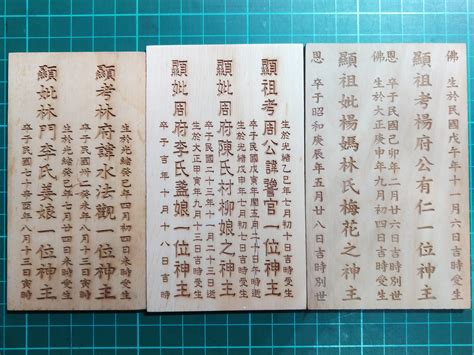 佛
生於民國戊年十一月十六日吉時受生
顯祖考楊府公有仁一位神主
卒于民國辛卯年二月廿六日吉時別世
佛
生於大正庚申年九月初四日吉時受生
顯祖妣楊媽林氏梅花之神主
恩
卒于昭和庚辰年五月廿八日吉時別世
顯祖考周公諱官一位神主
生於光緒乙巳年七月初十日吉時受生
卒于民國年閏五月十日午時逝
顯妣周府陳氏村柳娘之神主
生於光緒戊申年七月初七日吉時受生
卒于民國二十九年十月二十三日
顯妣周府李氏蓋娘一位神主
生於大正甲寅年九月十三日吉時受生
卒于吉年十月十八日吉時
顯考林府諱水法觀一位神主
生於光緒癸巳年四月初四日未時受生
卒于民國卅二癸未年八月十三日寅時
顯妣林門李氏娘一位神主
生於光緒癸年月初日吉時受生
卒于民國年七月廿四日